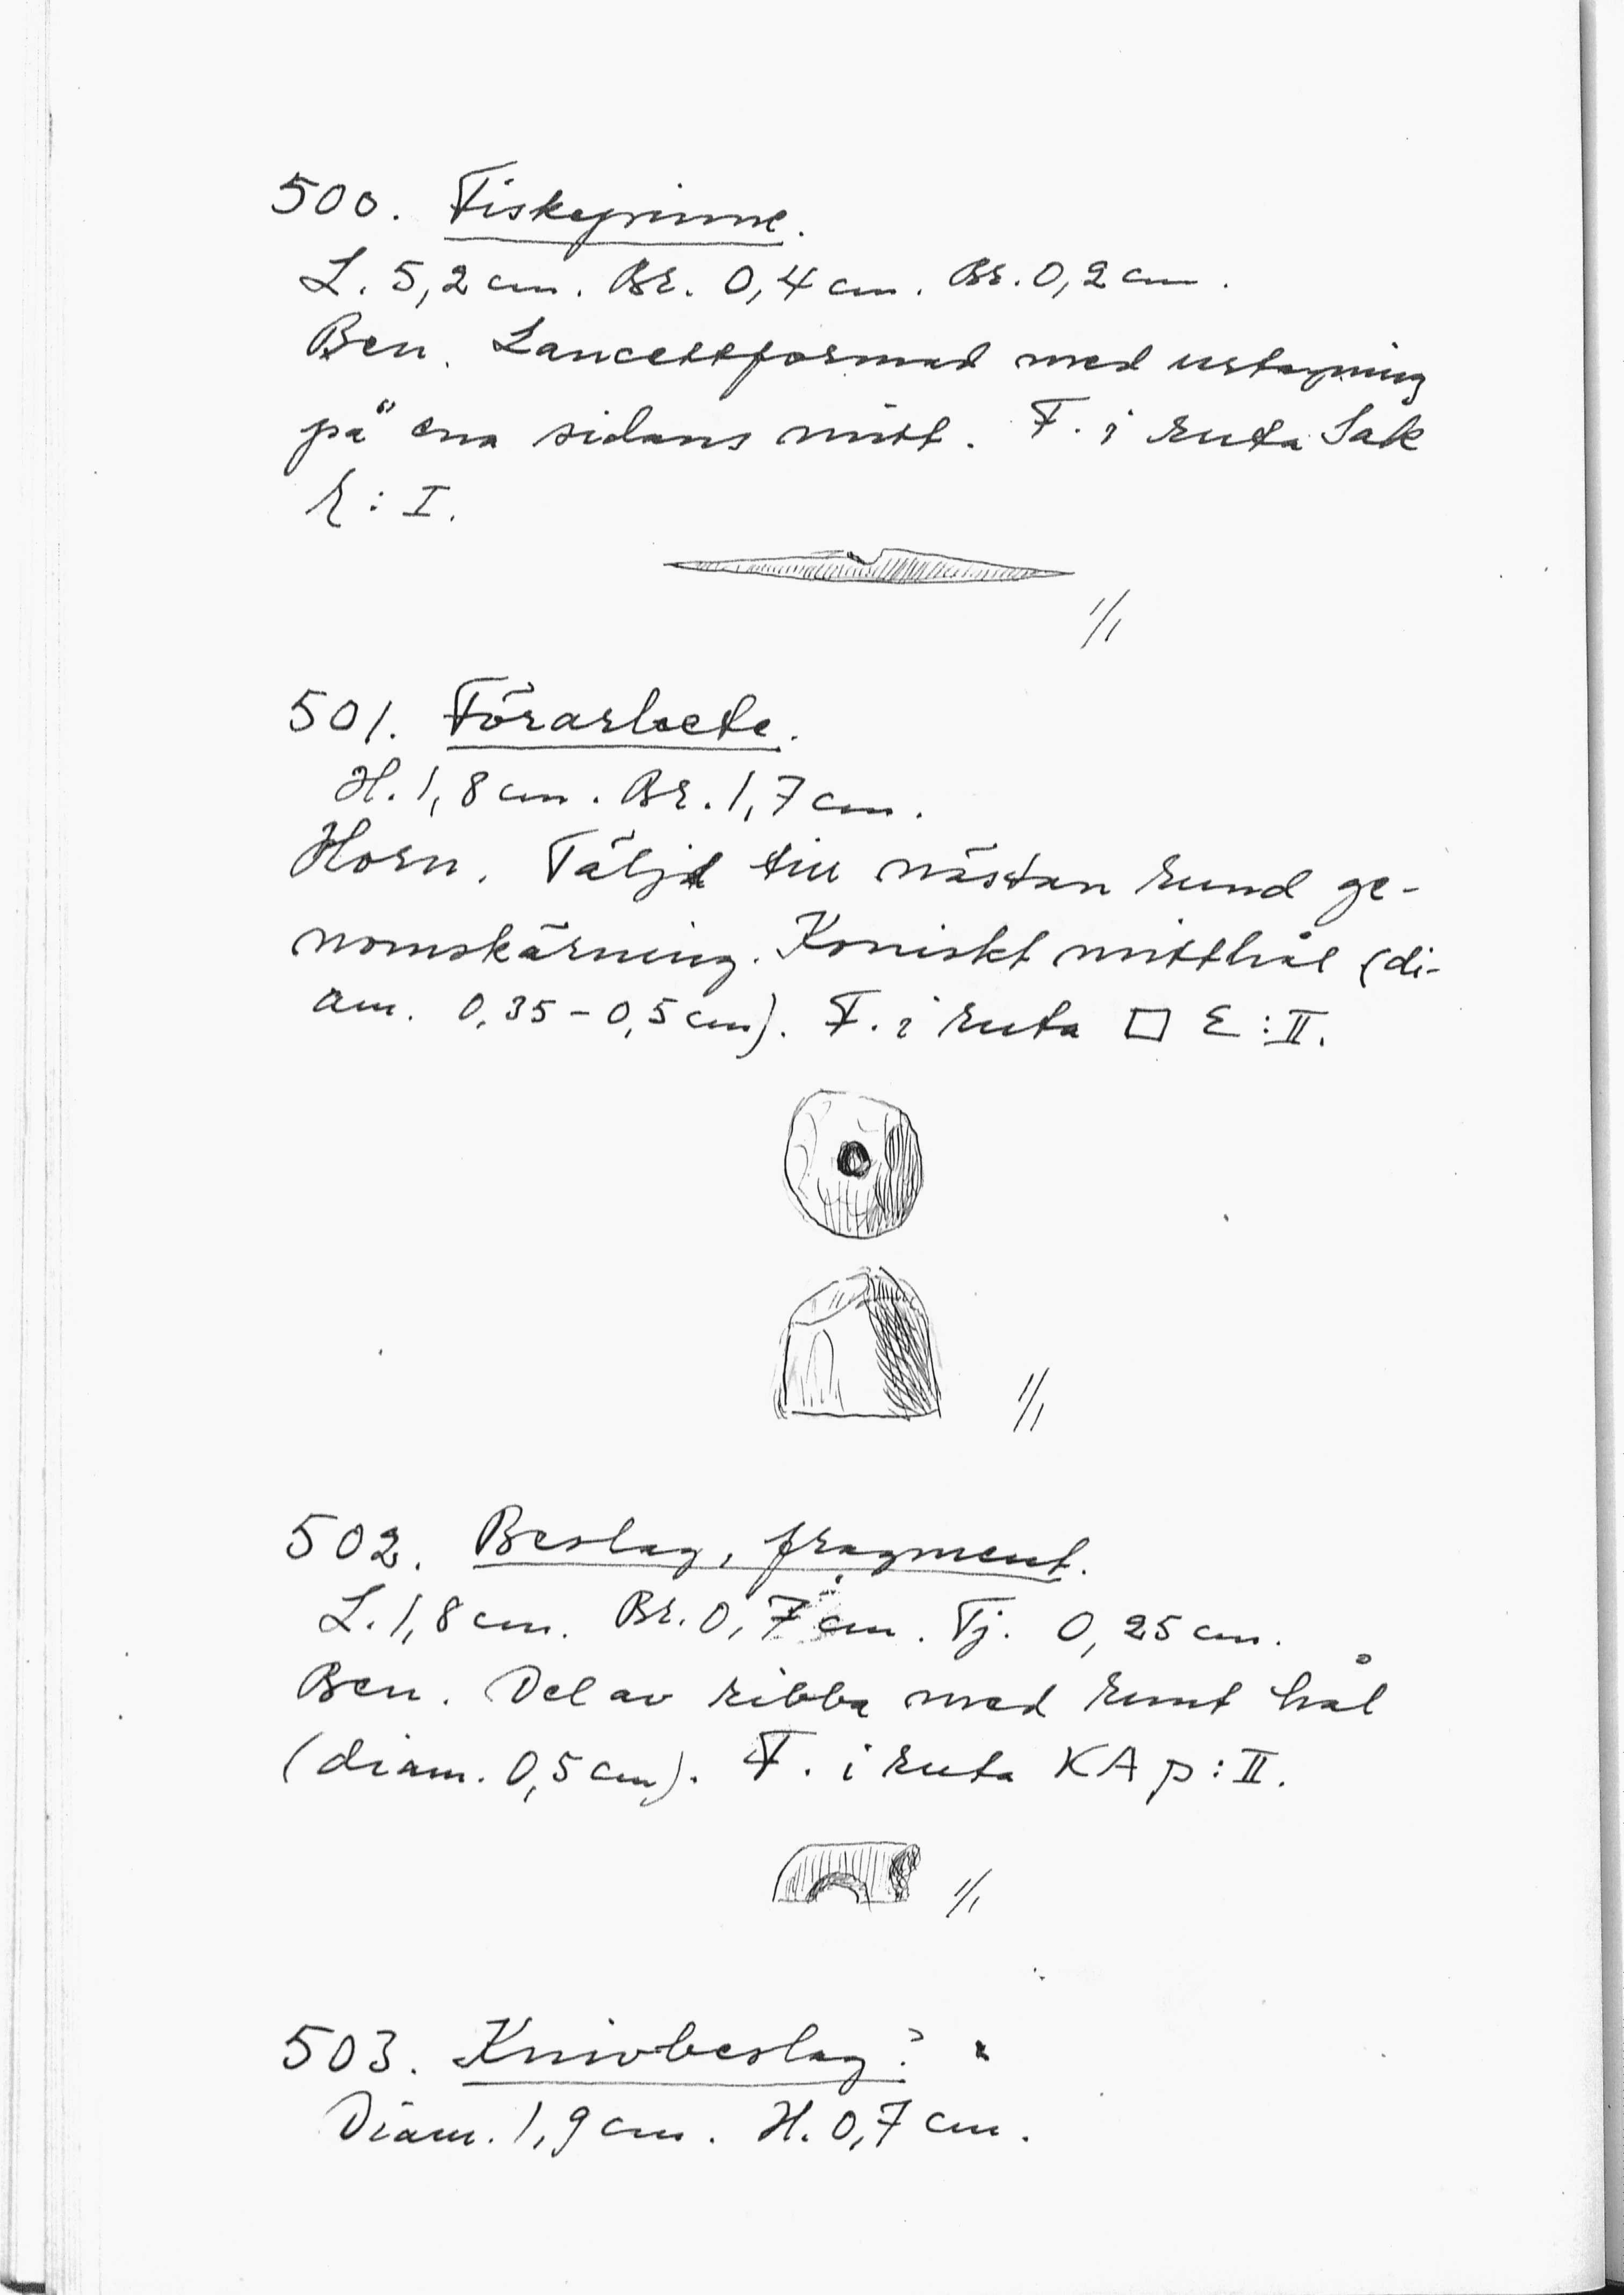 500. Fiskepinne.
L. 5,2 cm. Br. 0,4 cm. Br. 0,2 cm.
Ben. Lancettformad med urtagning
på ena sidans mitt. F. i ruta Sak
R : I.
1/1
501. Förarbete.
H. 1,8 cm. Br. 1,7 cm.
Horn. Täljd till nästan rund ge-
nomskärning. Koniskt mitthål (di-
am. 0,35 - 0,5 cm). F. i ruta □ E : II.
1/1
502. Beslag, fragment.
L. 1,8 cm. Br. 0,7 cm. Tj. 0,25 cm.
Ben. Del av ribba med runt hål
(diam. 0,5 cm). F. i ruta KA p : II.
1/1
503. Knivbeslag?
Diam. 1,9 cm. H. 0,7 cm.